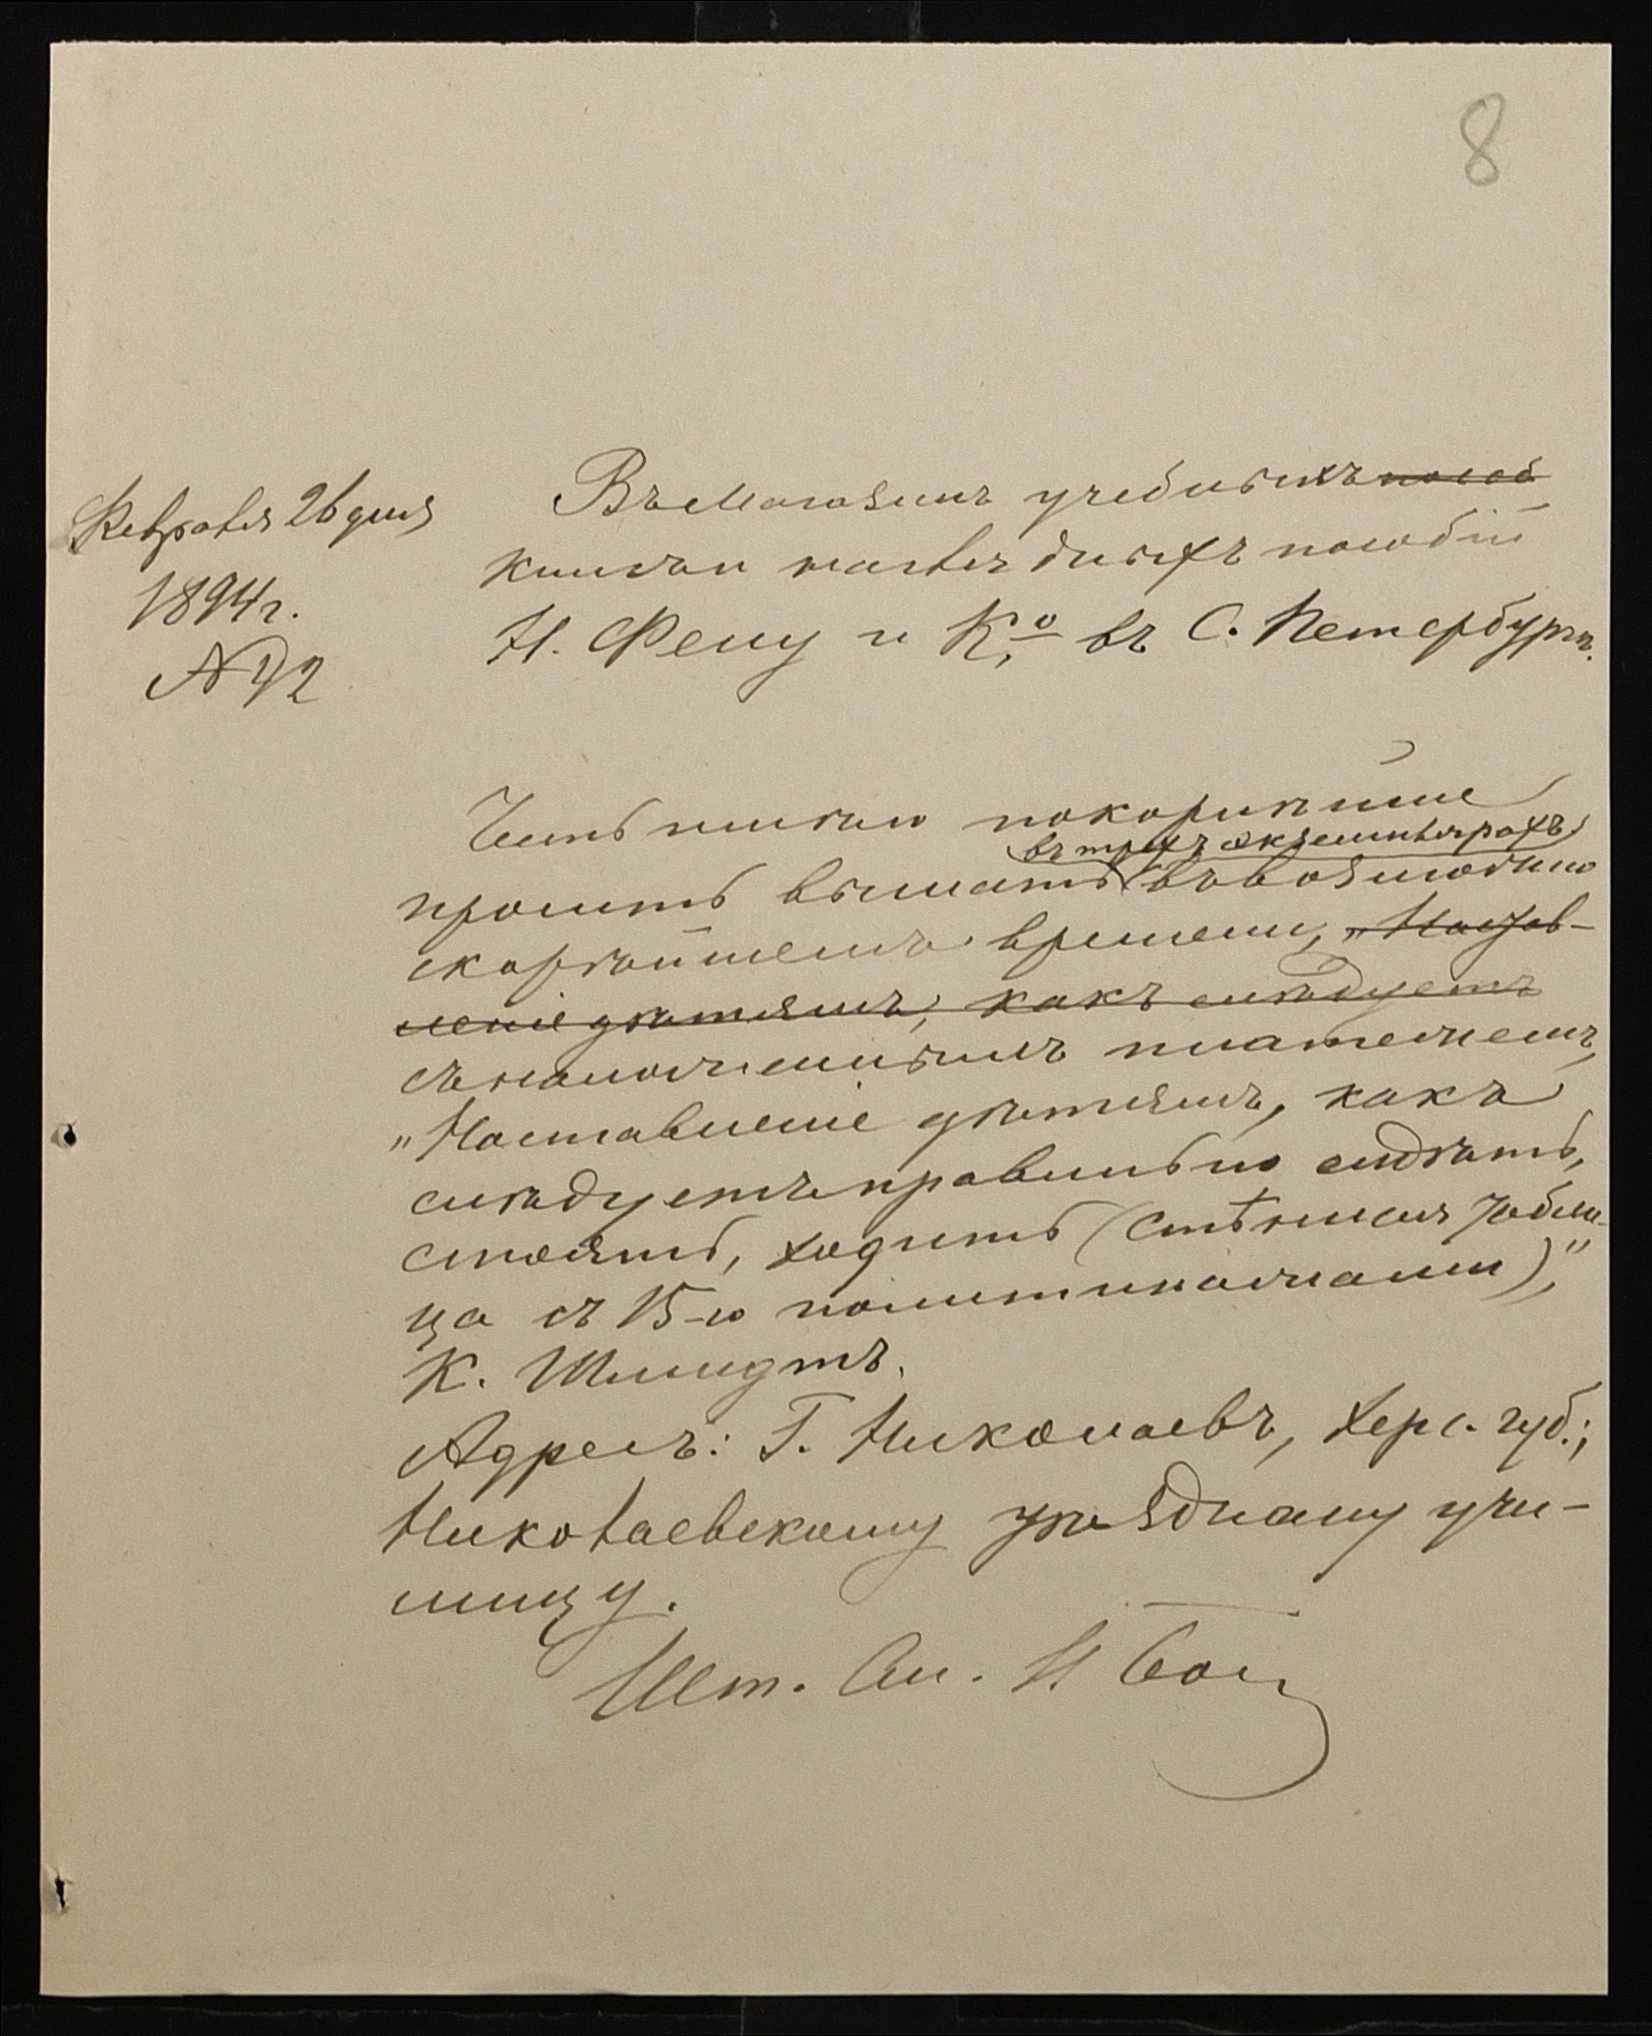 8
Февраля 26 дня
1894 г.
№ 42
Въ Магазинъ учебныхъ ~~пособ~~
книгъ и наглядныхъ пособій
Н. Фену и Ко въ С. Петербургѣ.
Честь имѣю покорнѣйше
въ трехъ экземплярахъ
просить выслать въ возможно
скорѣйшемъ времени, ~~„Настав-~~
~~леніе дѣтямъ, какъ слѣдуетъ~~
съ наложеннымъ платежемъ,
„Наставленіе дѣтямъ, какъ
слѣдуетъ правильно сидѣть,
стоять, ходить (стѣнная табли-
ца съ 15-ю политипажами)",
К. Шмидтъ.
Адресъ: Г. Николаевъ, Херс. губ.;
Николаевскому уѣздному учи-
лищу.
Шт. См.